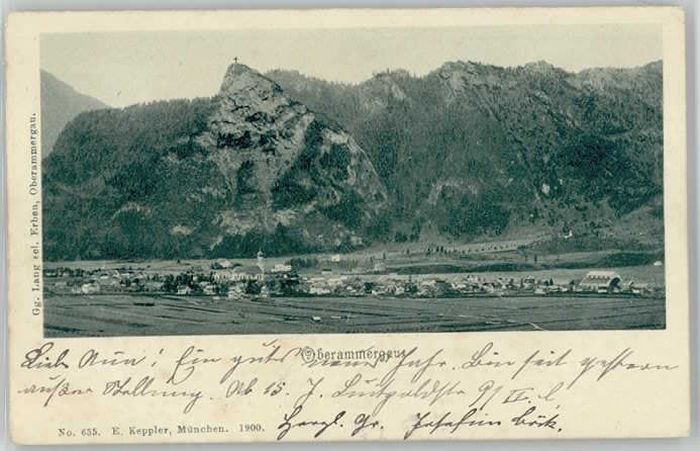 Gg. Lang sel. Erben, Oberammergau.
Oberammergau
Lieb Anna! Ein gutes neues Jahr. Bin seit gestern
außer Stellung. Ab 15. J. Luitpoldstr 9/IV. l
Herzl. Gr. Josefine Böck.
No. 655. E. Keppler, München. 1900.